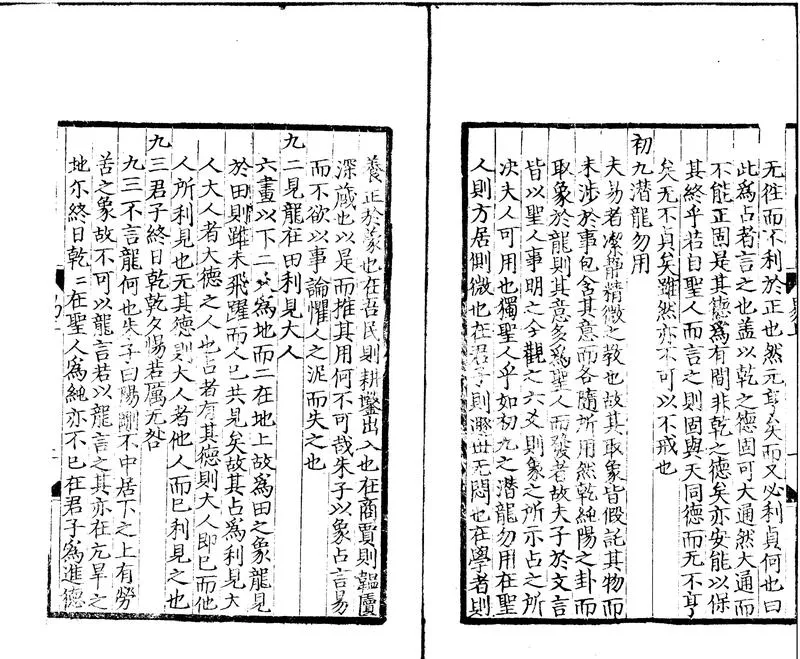 无往而不利於正也然元亨矣而又必利貞何也曰
此爲占者言之也盖以乾之德固可大通然大通而
不能正固是其德爲有間非乾之德矣亦安能以保
其終乎若自聖人而言之則固與天同德而无不亨
矣无不貞矣雖然亦不可以不戒也
初九潛龍勿用
夫易者潔靜精微之教也故其取象皆假託其物而
未涉於事包含其意而各隨所用然乾純陽之卦而
取象於龍則其意多爲聖人而發者故夫子於文言
皆以聖人事明之今觀之六爻則象之所示占之所
决夫人可用也獨聖人乎如初九之潛龍勿用在聖
人則方居側微也在君子則遯世无悶也在學者則
養正於蒙也在吾民則耕鑿出入也在商賈則韞匵
深蔵也以是而推其用何不可哉朱子以象占言易
而不欲以事論懼人之泥而失之也
九二見龍在田利見大人
六畫以下二爻爲地而二在地上故爲田之象龍見
於田則雖未飛躍而人已共見矣故其占爲利見大
人大人者大德之人也占者有其德則大人即已而他
人所利見也无其德則大人者他人而已利見之也
九三君子終日乾乾夕惕若厲无咎
九三不言龍何也朱子曰陽剛不中居下之上有勞
苦之象故不可以龍言若以龍言之其亦在亢旱之
地尓終日乾〻在聖人爲純亦不已在君子爲進德